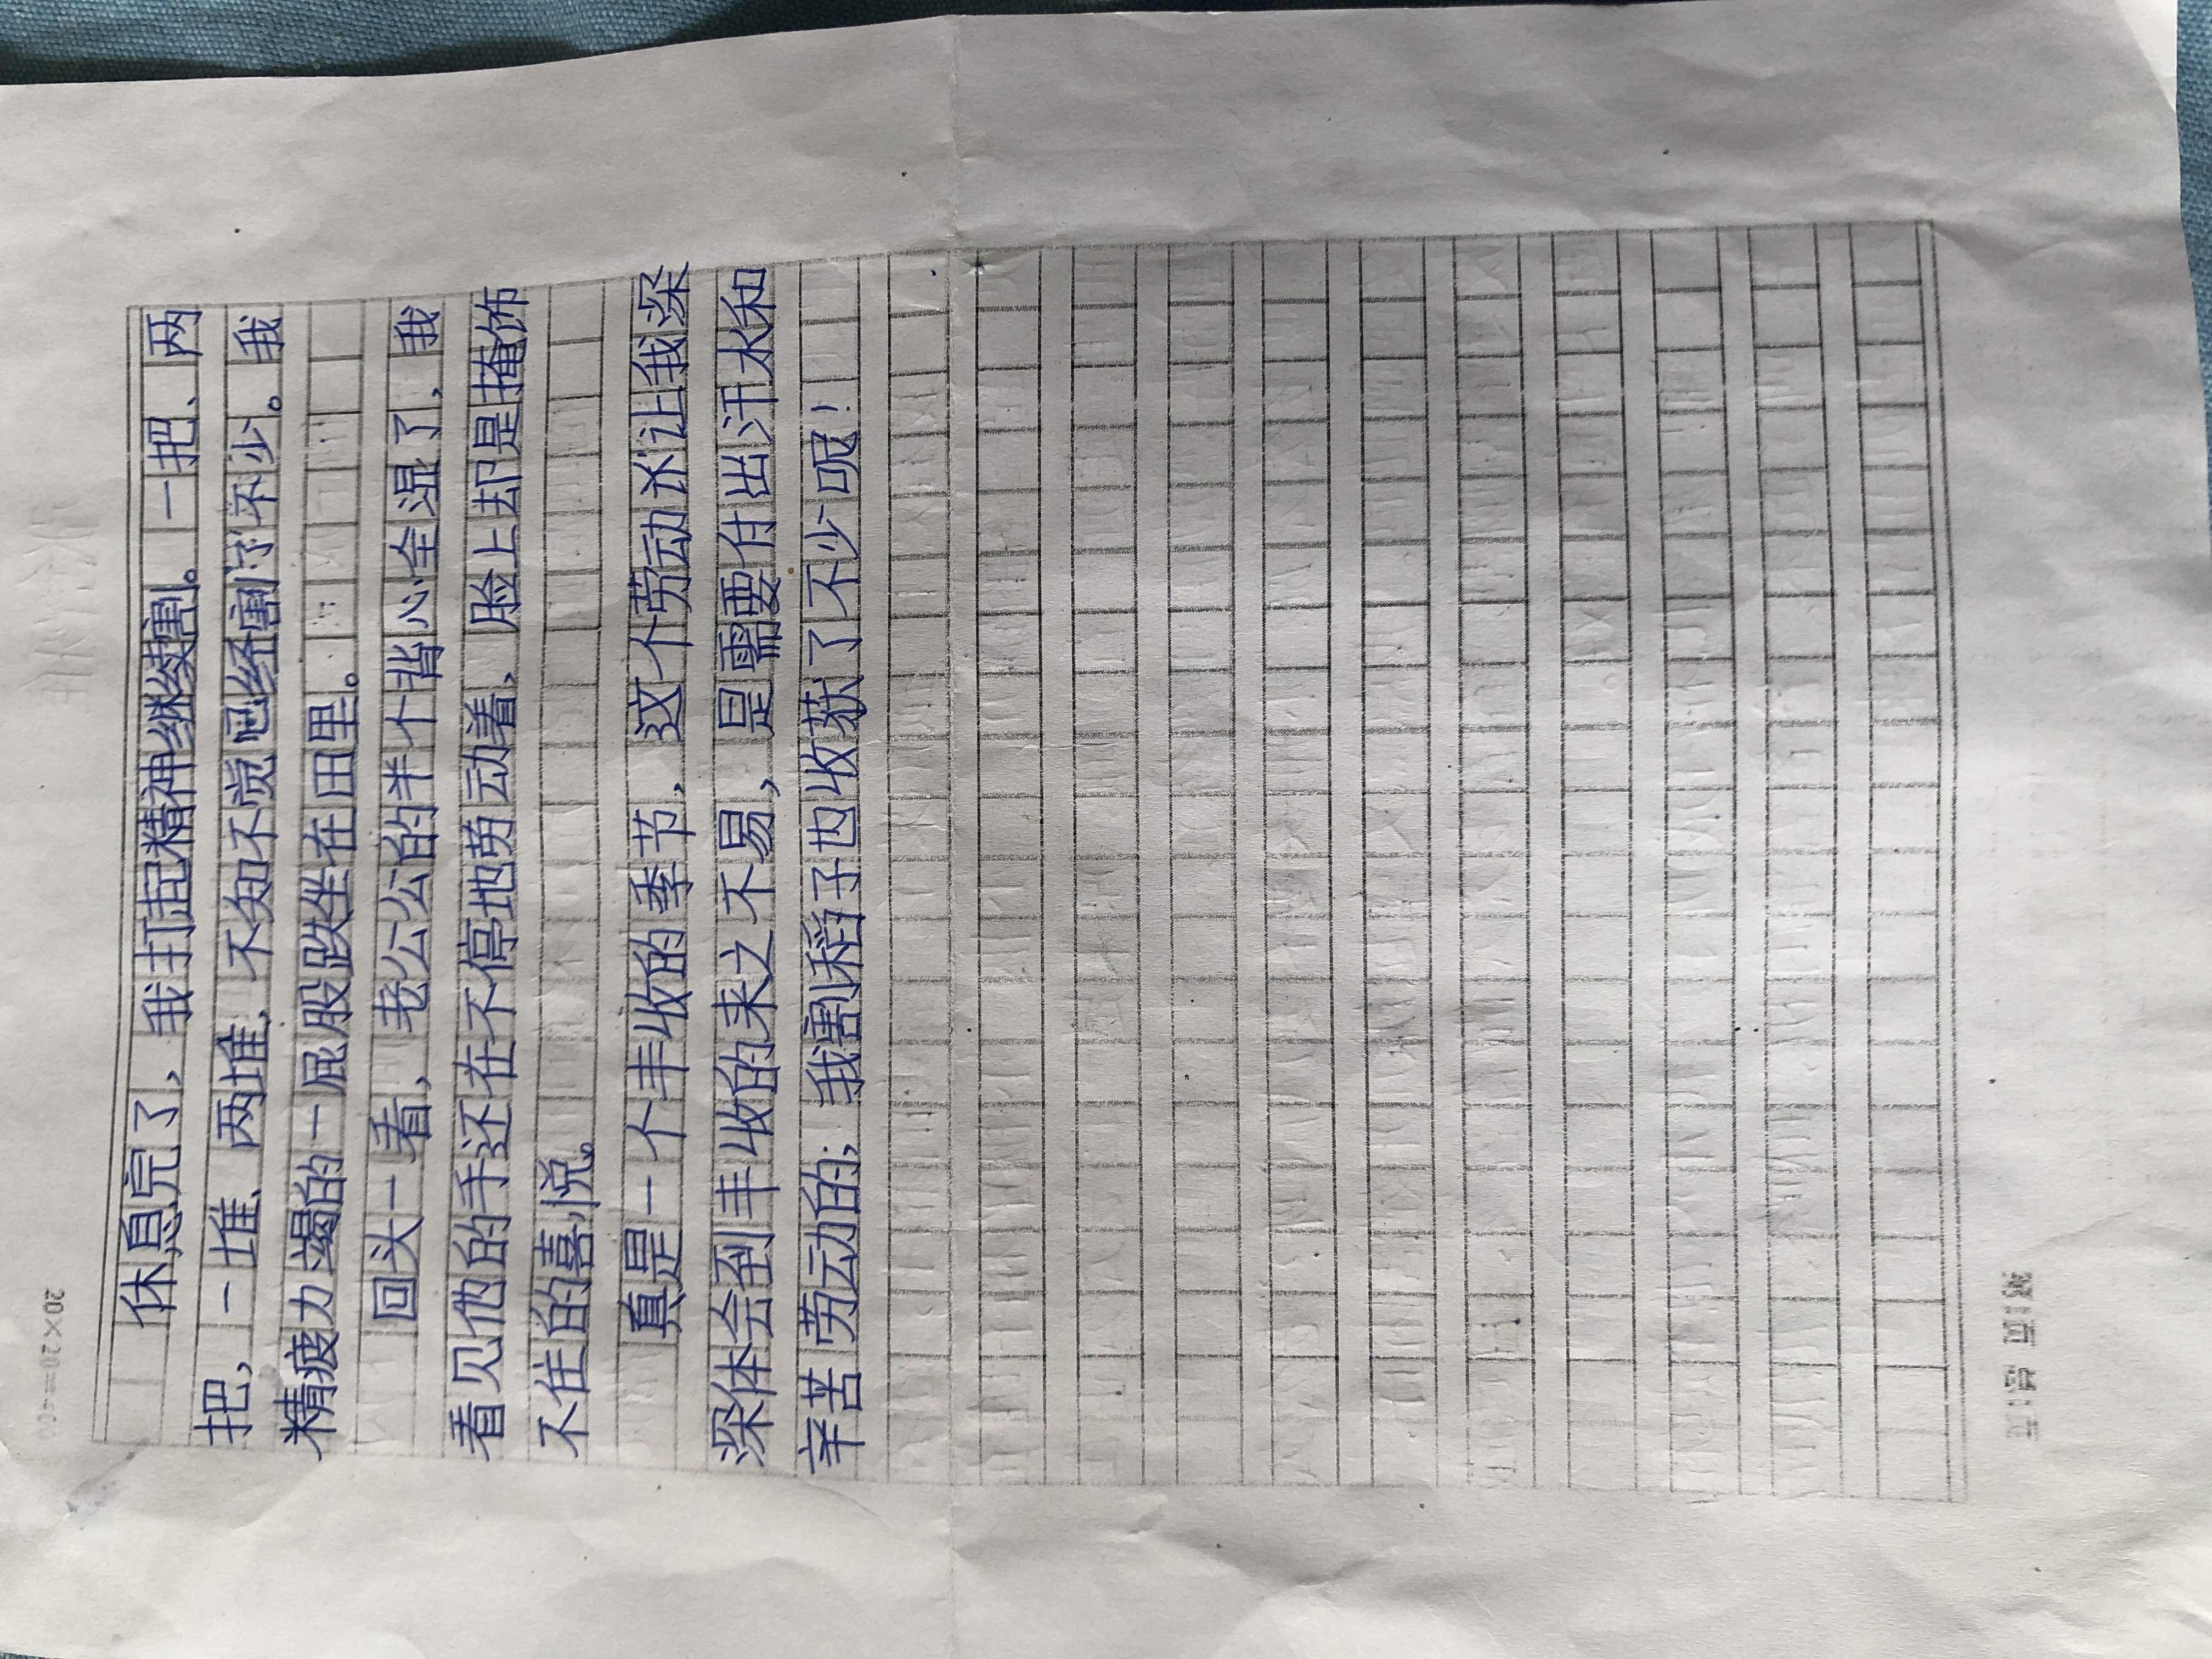 20×20=400
休息完了，我打起精神继续割。一把、两
把，一堆、两堆，不知不觉已经割了不少。我
精疲力竭的一屁股跌坐在田里。
回头一看，老公公的半个背心全湿了，我
看见他的手还在不停地劳动着，脸上却是掩饰
不住的喜悦。
真是一个丰收的季节，这个劳动让我深
深体会到丰收的来之不易，是需要付出汗水和
辛苦劳动的；我割稻子也收获了不少呢！
第1页 总1页